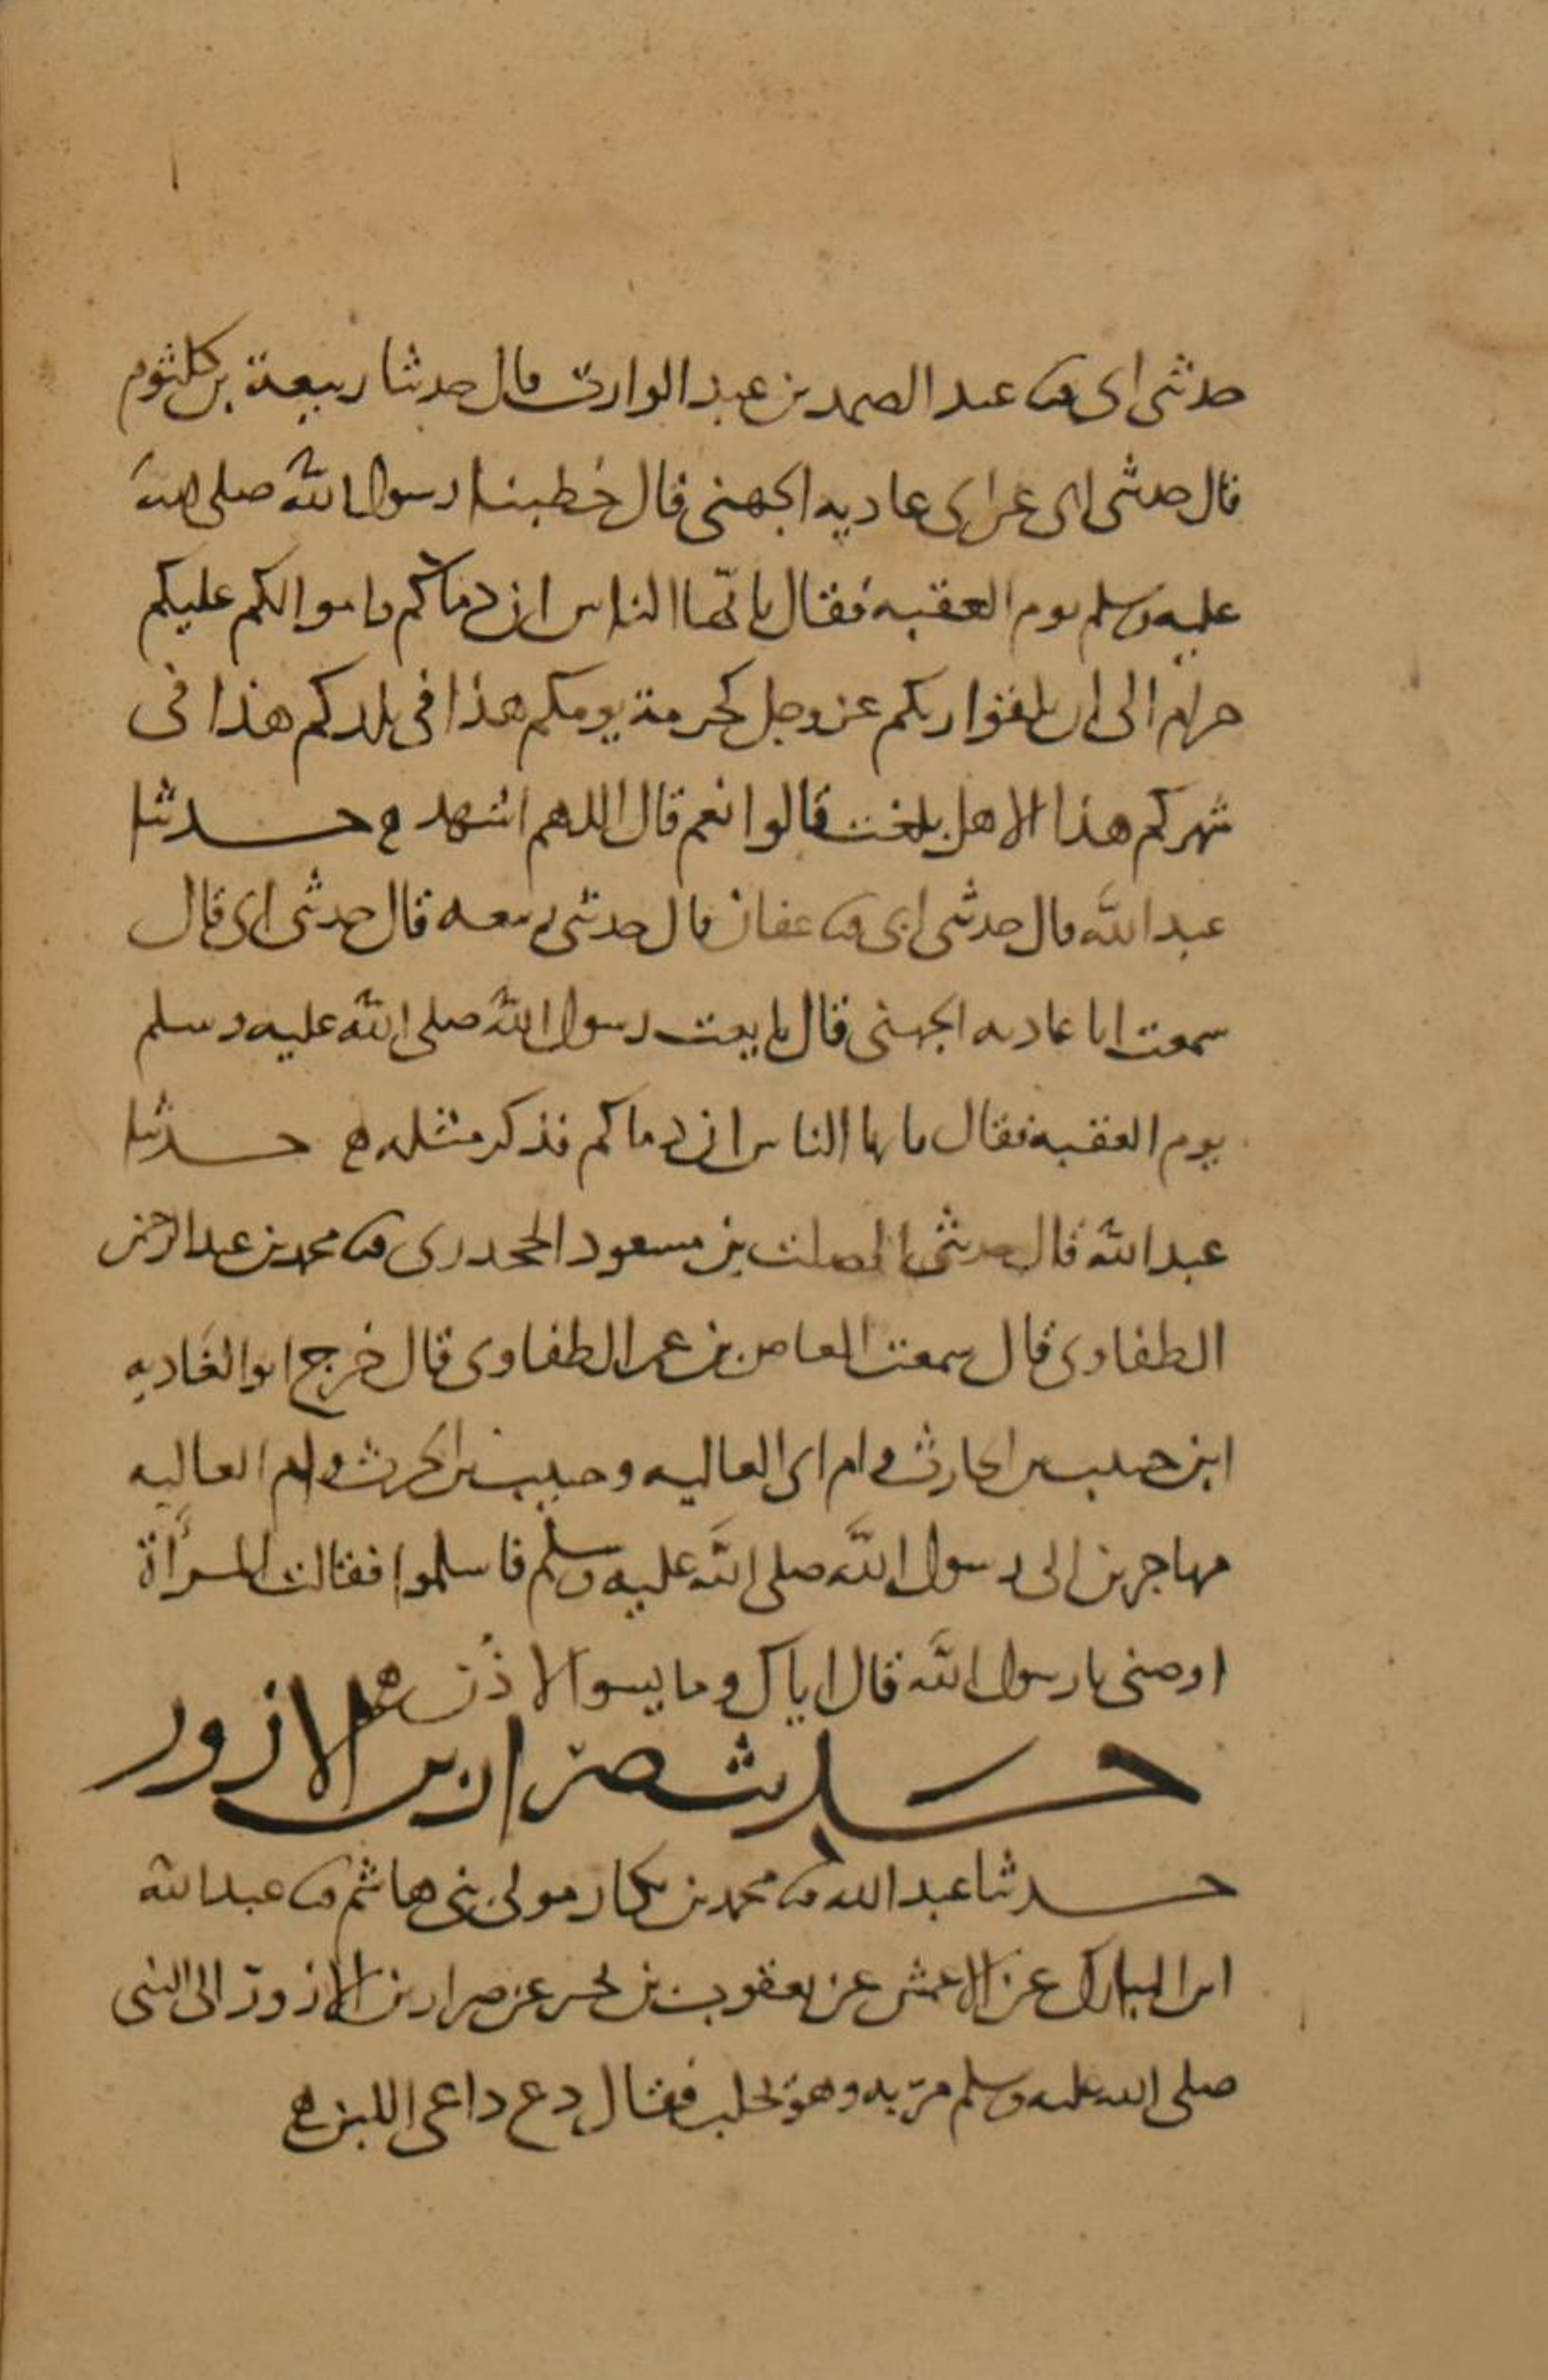 حدثنى ابى ثنا عبد الصمد بن عبد الوارث قال حدثنا ربيعة بن كلثوم
قال حدثنى ابى عن ابى غاديه الجهنى قال خطبنا رسول الله صلى الله
عليه وسلم يوم العقبه فقال يا ايها الناس ان دماكم واموالكم عليكم
حرام الى ان تلقوا ربكم عز وجل كحرمة يومكم هذا فى بلدكم هذا فى
شهركم هذا الا هل بلغت قالوا نعم قال اللهم اشهد ه حدثنا
عبد الله قال حدثنى ابى ثنا عفان قال حدثنى ربيعه قال حدثنى ابى قال
سمعت ابا غاديه الجهنى قال بايعت رسول الله صلى الله عليه وسلم
يوم العقبه فقال يا ايها الناس ان دماكم فذكر مثله ه حدثنا
عبد الله قال حدثنى الصلت بن مسعود الجحدرى ثنا محمد بن عبد الرحمن
الطفاوى قال سمعت العاص بن عمر الطفاوى قال خرج ابو الغاديه
ابن حبيب بن الحارث وام ابى العاليه وحبيب بن الحرث وام العاليه
مهاجرين الى رسول الله صلى الله عليه وسلم فاسلموا فقالت المرأة
اوصنى يا رسول الله قال اياك وما يسوا الاذن ه
حديث ضرار بن الازور
حدثنا عبد الله ثنا محمد بن بكار مولى بنى هاشم ثنا عبد الله
ابن المبارك عن الاعمش عن يعقوب بن بحير عن ضرار بن الازور ان النبى
صلى الله عليه وسلم مر به وهو يحلب فقال دع داعى اللبن ه